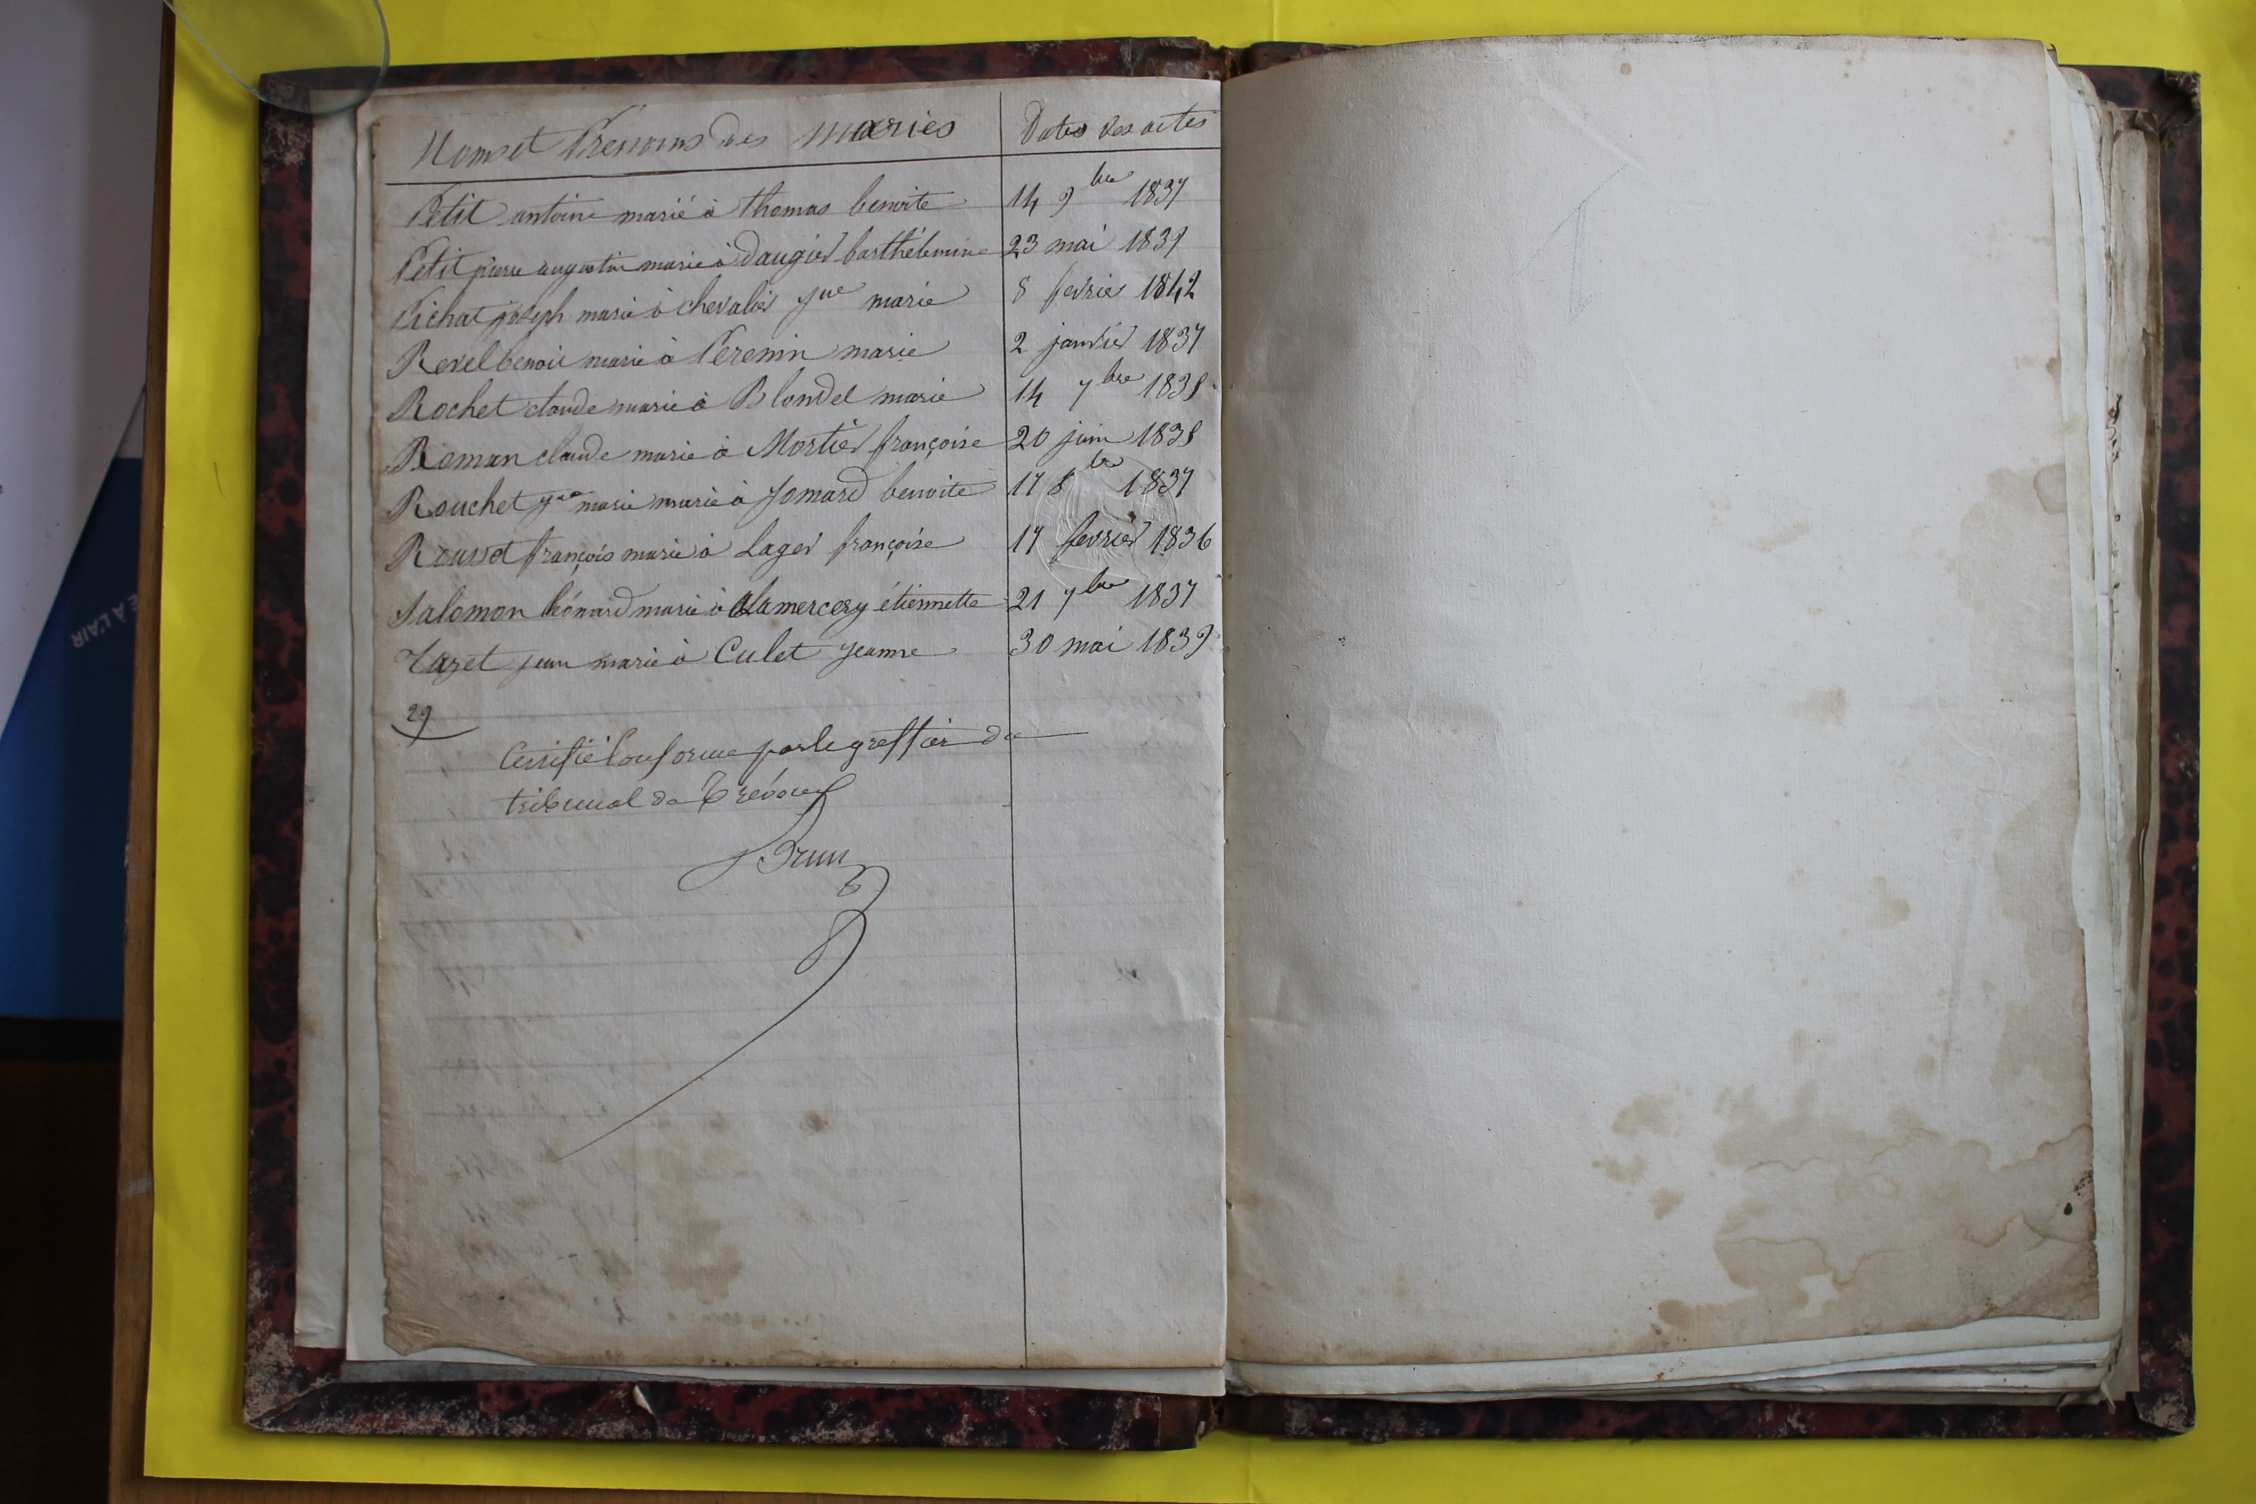 Noms et Prenoms des Mariés Dates des actes
Petit antoine marié à thomas benoite 14 9bre 1837
Petit pierre augustin marié à Daugier barthélemine 23 mai 1837
Pichat joseph marié à chevalier jne marie 8 fevrier 1842
Revel benoit marié à Perenin marie 2 janvier 1837
Rochet claude marié à Blondel marie 14 7bre 1838
Roman claude marié à Mortier françoise 20 juin 1838
Rouchet marie marié à Jomard benoite 17 8bre 1837
Rousset françois marié à Lager françoise 17 fevrier 1836
Salomon léonard marié à Alamercery étiennette 21 7bre 1837
Tazet jean marié à Culet jeanne 30 mai 1839
29
Certifié Conforme par le greffier du
tribunal de Trévoux
Brun
E À L'AIR